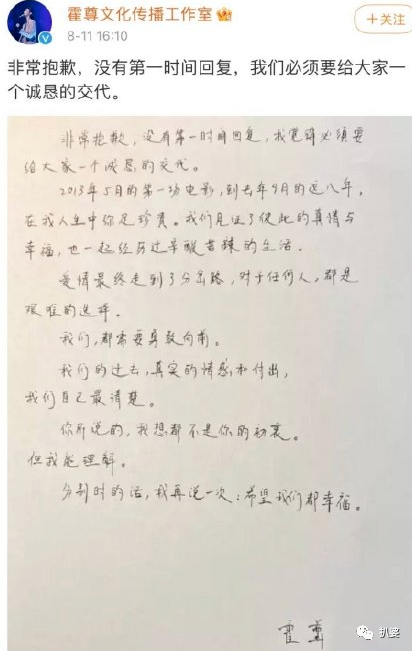 霍尊文化传播工作室
8-11 16:10
+关注
非常抱歉，没有第一时间回复，我们必须要给大家一
个诚恳的交代。
非常抱歉，没有第一时间回复，我觉得必须要
给大家一个诚恳的交代。
2013年5月的第一场电影，到去年9月的这八年，
在我人生中弥足珍贵。我们见证了彼此的真情与
幸福，也一起经历过辛酸苦辣的生活。
爱情最终走到了分岔路，对于任何人，都是
艰难的选择。
我们，都需要勇敢向前。
我们的过去，真实的情感和付出，
我们自己最清楚。
你所说的，我想都不是你的初衷。
但我能理解。
分别时的话，我再说一次：希望我们都幸福。
霍尊